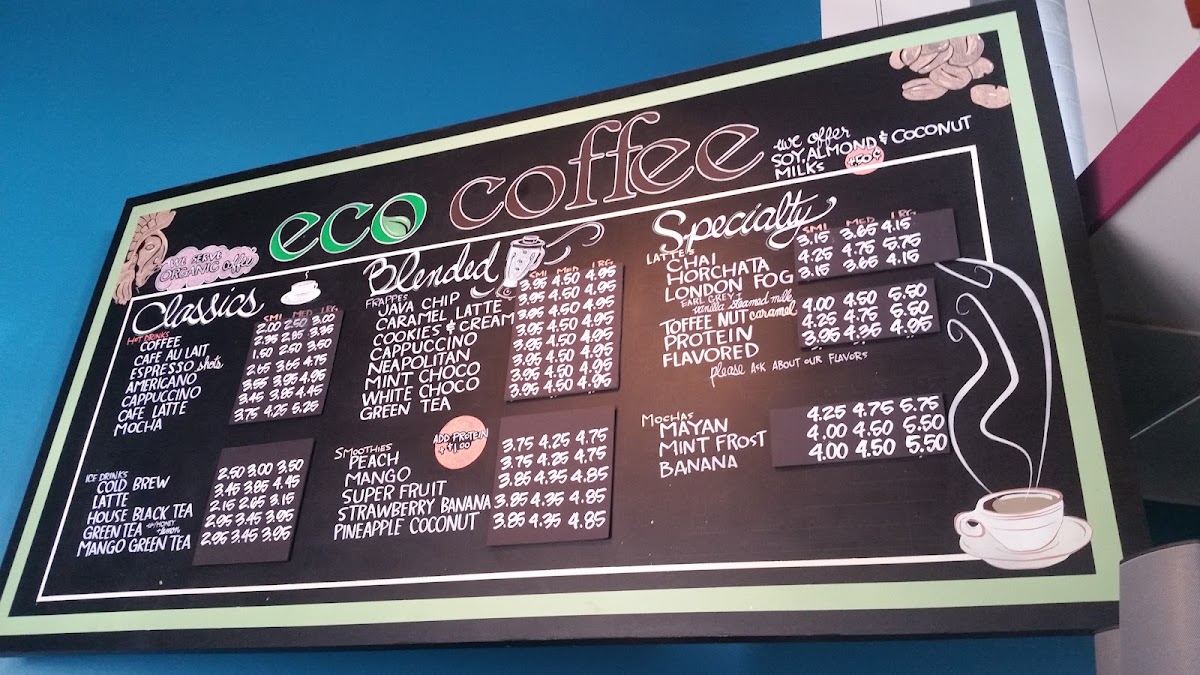 eco coffee
we offer
SOY, ALMOND & COCONUT
MILKS +50¢
WE SERVE
ORGANIC coffee
Classics
SML MED LRG.
HOT DRINKS
COFFEE 2.00 2.50 3.00
CAFE AU LAIT 2.35 2.85 3.35
ESPRESSO shots 1.50 2.50 3.50
AMERICANO 2.65 3.65 4.75
CAPPUCCINO 3.55 3.95 4.95
CAFE LATTE 3.45 3.85 4.45
MOCHA 3.75 4.25 5.25
ICE DRINKS
COLD BREW 2.50 3.00 3.50
LATTE 3.45 3.85 4.45
HOUSE BLACK TEA 2.15 2.65 3.15
GREEN TEA w/HONEY + LEMON 2.95 3.45 3.95
MANGO GREEN TEA 2.95 3.45 3.95
Blended
SML MED LRG.
FRAPPES
JAVA CHIP 3.95 4.50 4.95
CARAMEL LATTE 3.95 4.50 4.95
COOKIES & CREAM 3.95 4.50 4.95
CAPPUCCINO 3.95 4.50 4.95
NEAPOLITAN 3.95 4.50 4.95
MINT CHOCO 3.95 4.50 4.95
WHITE CHOCO 3.95 4.50 4.95
GREEN TEA 3.95 4.50 4.95
ADD PROTEIN
+$1.00
SMOOTHIES
PEACH 3.75 4.25 4.75
MANGO 3.75 4.25 4.75
SUPER FRUIT 3.85 4.35 4.85
STRAWBERRY BANANA 3.85 4.35 4.85
PINEAPPLE COCONUT 3.85 4.35 4.85
Specialty
SML MED LRG.
LATTES
CHAI 3.15 3.65 4.15
HORCHATA 4.25 4.75 5.75
LONDON FOG 3.15 3.65 4.15
EARL GREY +
vanilla steamed milk
TOFFEE NUT caramel 4.00 4.50 5.50
PROTEIN 4.25 4.75 5.50
FLAVORED 3.95 4.35 4.95
please ASK ABOUT OUR FLAVORS
MOCHAS
MAYAN 4.25 4.75 5.75
MINT FROST 4.00 4.50 5.50
BANANA 4.00 4.50 5.50